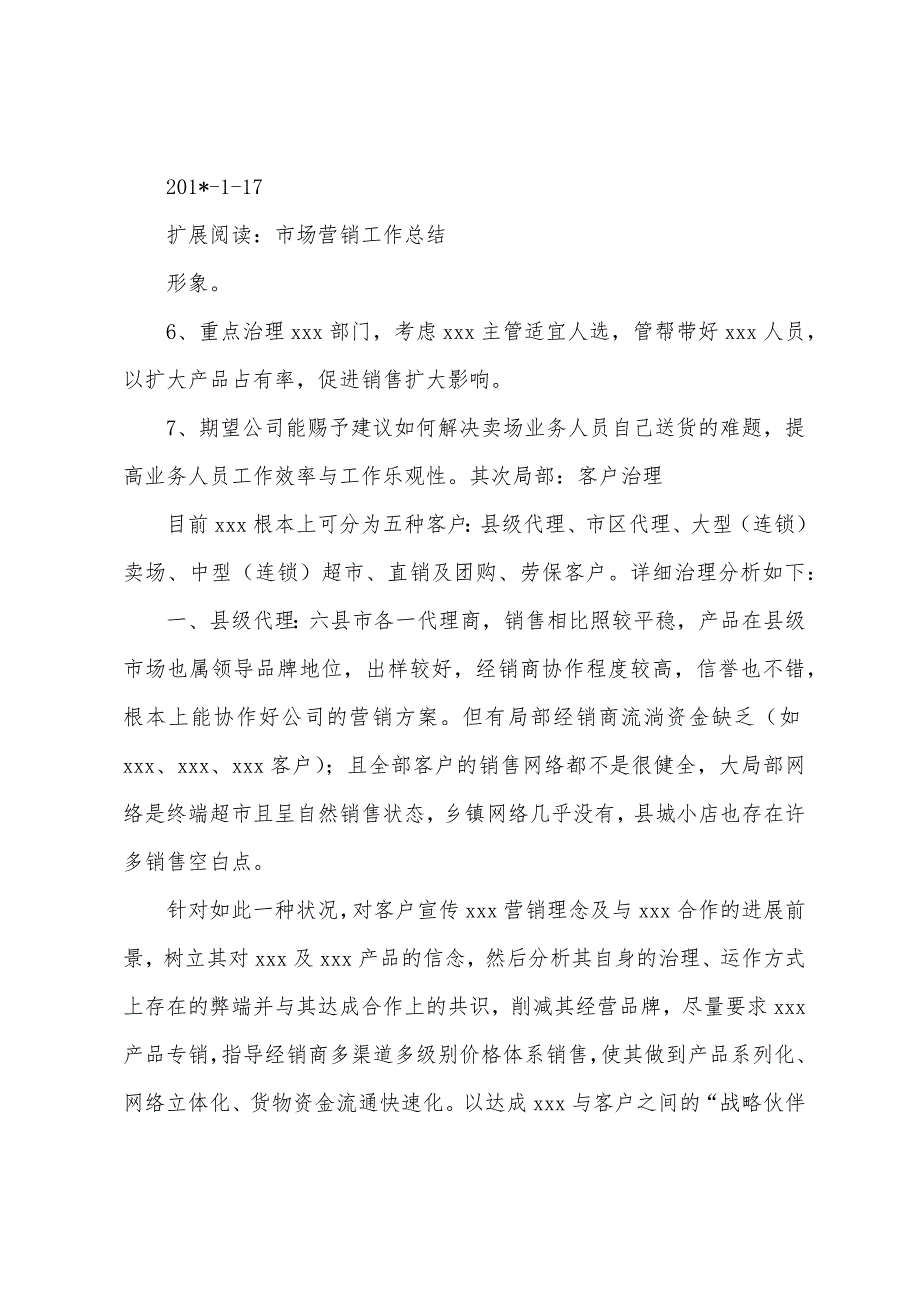 201*-1-17
扩展阅读：市场营销工作总结
形象。
6、重点治理 xxx 部门，考虑 xxx 主管适宜人选，管帮带好 xxx 人员，
以扩大产品占有率，促进销售扩大影响。
7、期望公司能赐予建议如何解决卖场业务人员自己送货的难题，提
高业务人员工作效率与工作乐观性。其次局部：客户治理
目前 xxx 根本上可分为五种客户：县级代理、市区代理、大型（连锁）
卖场、中型（连锁）超市、直销及团购、劳保客户。详细治理分析如下：
一、县级代理：六县市各一代理商，销售相比照较平稳，产品在县级
市场也属领导品牌地位，出样较好，经销商协作程度较高，信誉也不错，
根本上能协作好公司的营销方案。但有局部经销商流淌资金缺乏（如
xxx、xxx、xxx 客户）；且全部客户的销售网络都不是很健全，大局部网
络是终端超市且呈自然销售状态，乡镇网络几乎没有，县城小店也存在许
多销售空白点。
针对如此一种状况，对客户宣传 xxx 营销理念及与 xxx 合作的进展前
景，树立其对 xxx 及 xxx 产品的信念，然后分析其自身的治理、运作方式
上存在的弊端并与其达成合作上的共识，削减其经营品牌，尽量要求 xxx
产品专销，指导经销商多渠道多级别价格体系销售，使其做到产品系列化、
网络立体化、货物资金流通快速化。以达成 xxx 与客户之间的“战略伙伴